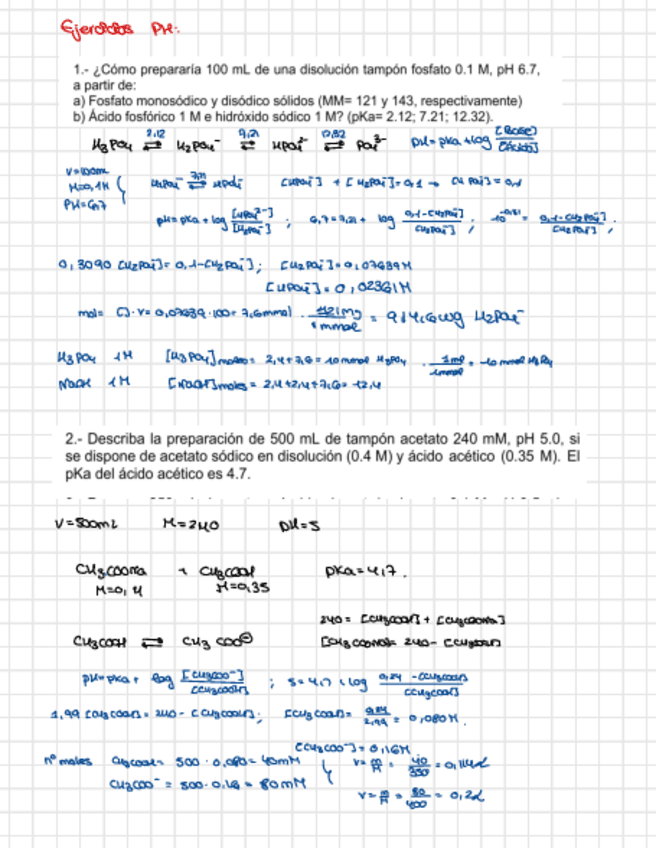 Ejercicios PH:
1.- ¿Cómo prepararía 100 mL de una disolución tampón fosfato 0.1 M, pH 6.7,
a partir de:
a) Fosfato monosódico y disódico sólidos (MM= 121 y 143, respectivamente)
b) Ácido fosfórico 1 M e hidróxido sódico 1 M? (pKa= 2.12; 7.21; 12.32).
H3PO4 ⇄ H2PO4⁻ ⇄ HPO4²⁻ ⇄ PO4³⁻ pH=pKa+log [Base]/[Ácido]
V=100mL
M=0,1M
PH=6,7
pH=pKa+log [HPO4²⁻]/[H2PO4⁻] ; 6,7=7,21+ log 0,1-[H2PO4⁻]/[H2PO4⁻] ; 10^-0,51 = 0,1-[H2PO4⁻]/[H2PO4⁻] ;
0,3090 [H2PO4⁻]= 0,1-[H2PO4⁻] ; [H2PO4⁻]=0,07639M
[HPO4⁻]=0,02361M
mol= []·V= 0,07639·100= 7,6mmol · 121mg/1mmol = 914,6mg H2PO4⁻
H3PO4 1M [H3PO4]moles= 2,4+7,6=10mmol H3PO4 · 1ml/1mmol =
NaOH 1M [NaOH]moles= 2,4+2,4+7,6= 12,4
2.- Describa la preparación de 500 mL de tampón acetato 240 mM, pH 5.0, si
se dispone de acetato sódico en disolución (0.4 M) y ácido acético (0.35 M). El
pKa del ácido acético es 4.7.
V=500mL M=240 pH=5
CH3COONa + CH3COOH pKa=4,7.
M=0,4 M=0,35
240= [CH3COOH] + [CH3COONa]
CH3COOH ⇄ CH3COO⊖ [CH3COONa]= 240- [CH3COOH]
pH=pKa+ log [CH3COO⁻]/[CH3COOH] ; 5=4,7+log 0,24 -[CH3COOH]/[CH3COOH]
1,99 [CH3COOH]= 240- [CH3COOH] ; [CH3COOH]= 0,24/2,99 = 0,080M.
[CH3COO⁻]=0,16M
nº moles CH3COOH= 500·0,080=40mM V=m/M = 40/350 = 0,114L
CH3COO⁻= 500·0,16= 80mM V=m/M = 80/400 = 0,2L